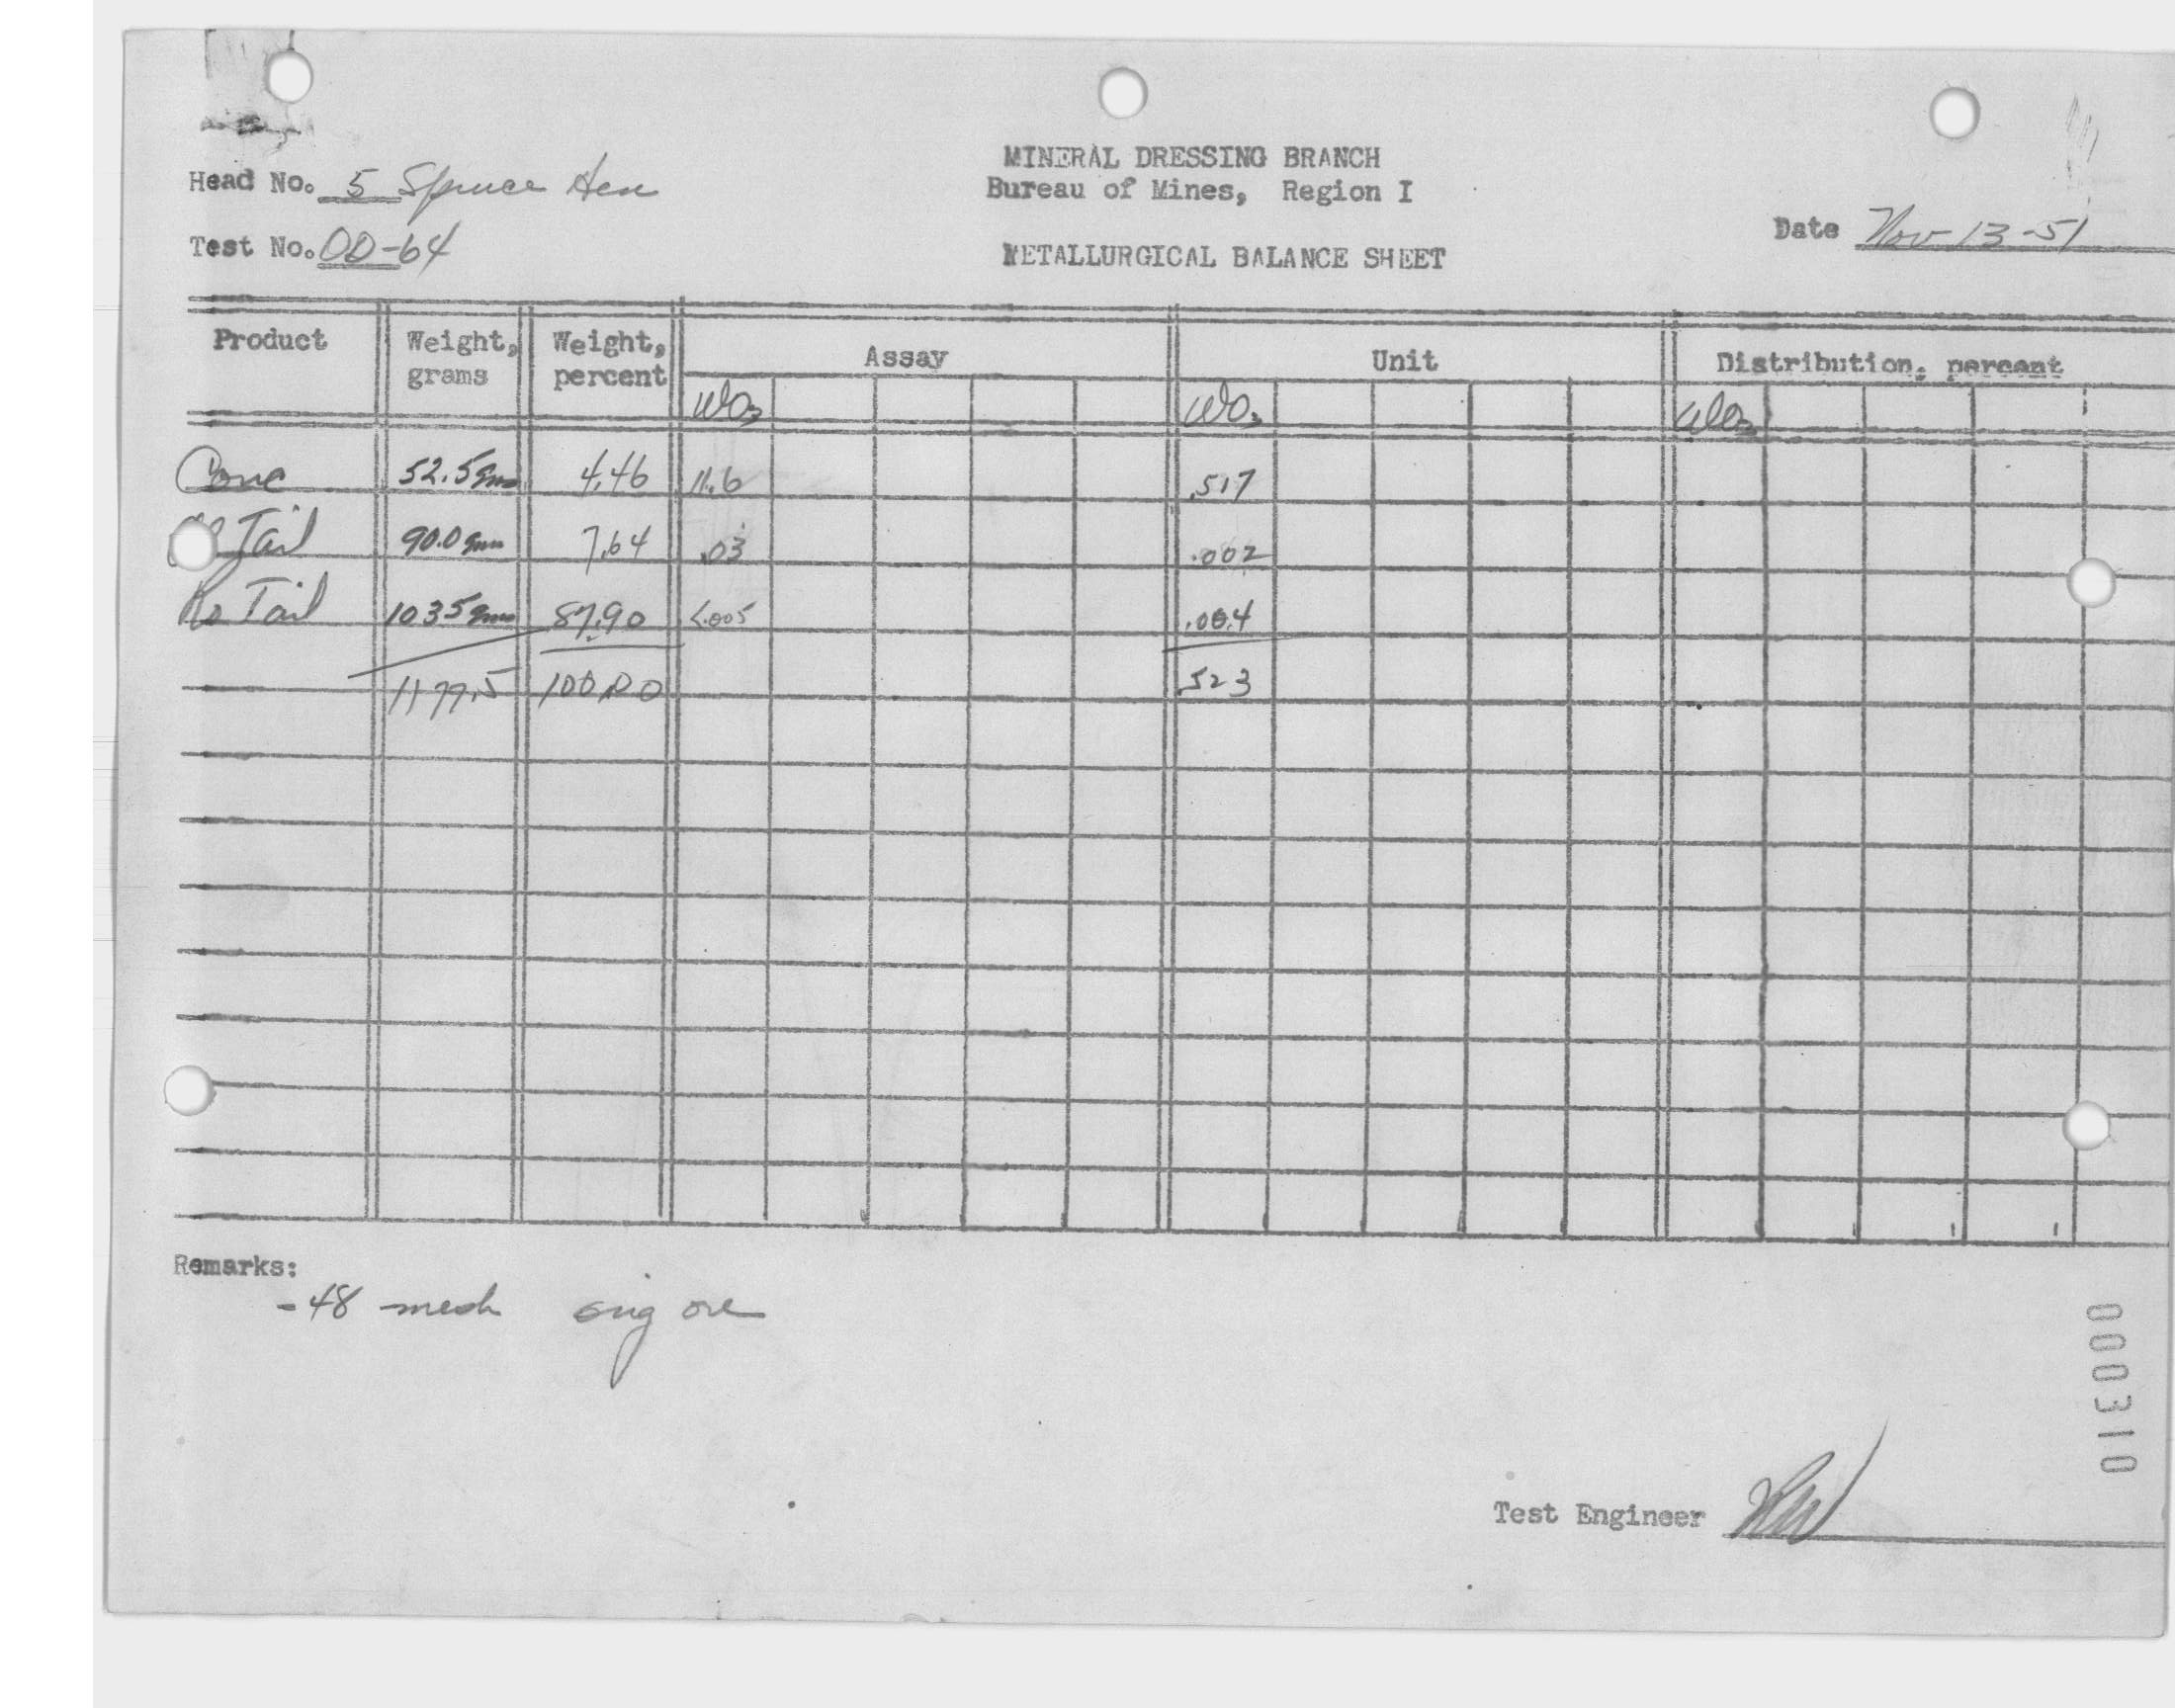 MINERAL DRESSING BRANCH
Head No. 5 Spruce Hen
Bureau of Mines, Region I
Date Nov 13-51
Test No. OD-64
METALLURGICAL BALANCE SHEET
Product Weight, grams Weight, percent Assay Unit Distribution, percent
WO3 WO3 WO3
Conc 52.5 gms 4.46 11.6 .517
Tail 90.0 gms 7.64 .03 .002
Ro Tail 1035 gms 87.90 <.005 .004
1177.5 100.00 .523
Remarks:
-48 mesh orig ore
000310
Test Engineer